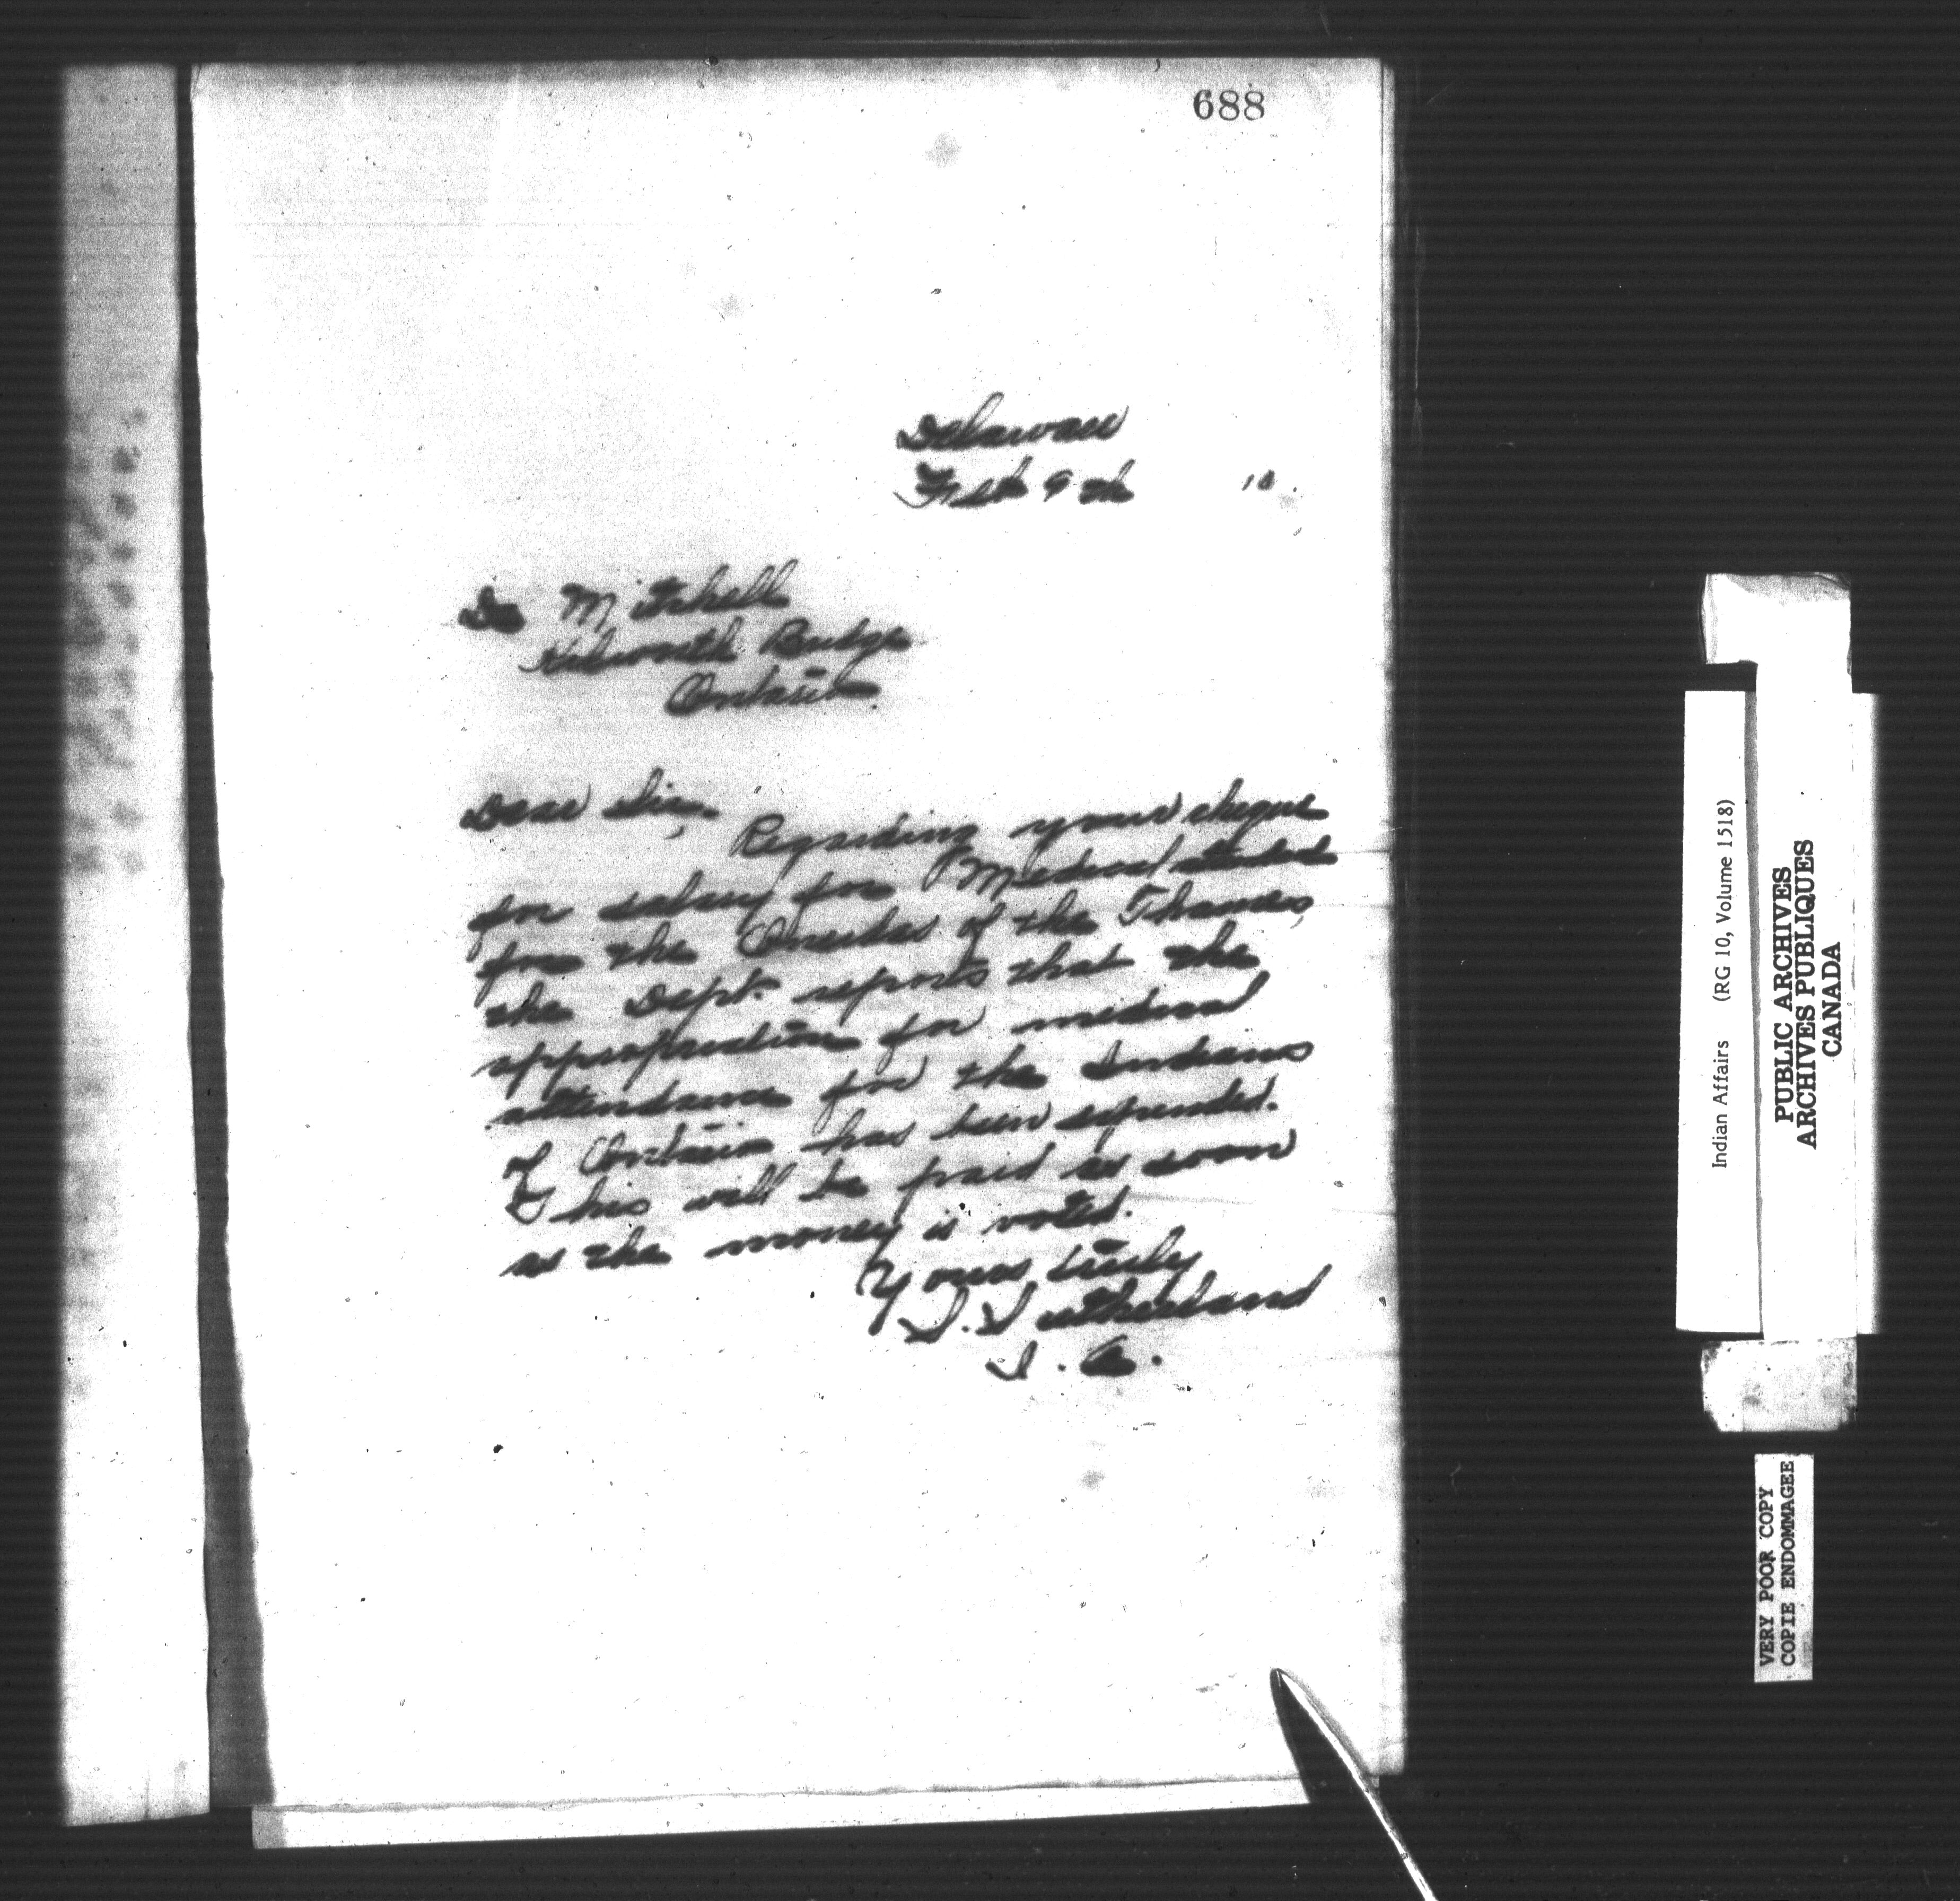 688
Delaware
Feb 9th 10.
Dr Mitchell
Kilworth Bridge
Ontario.
Dear Sir,
Regarding your cheque
for salary for Medical
for the Oneidas of the Thames,
the Dept. reports that the
appropriation for medical
attendance for the Indians
of Ontario has been expended.
This will be paid as soon
as the money is voted.
Yours truly
S. Sutherland
I. A.
Indian Affairs (RG 10, Volume 1518)
PUBLIC ARCHIVES
ARCHIVES PUBLIQUES
CANADA
VERY POOR COPY
COPIE ENDOMMAGEE